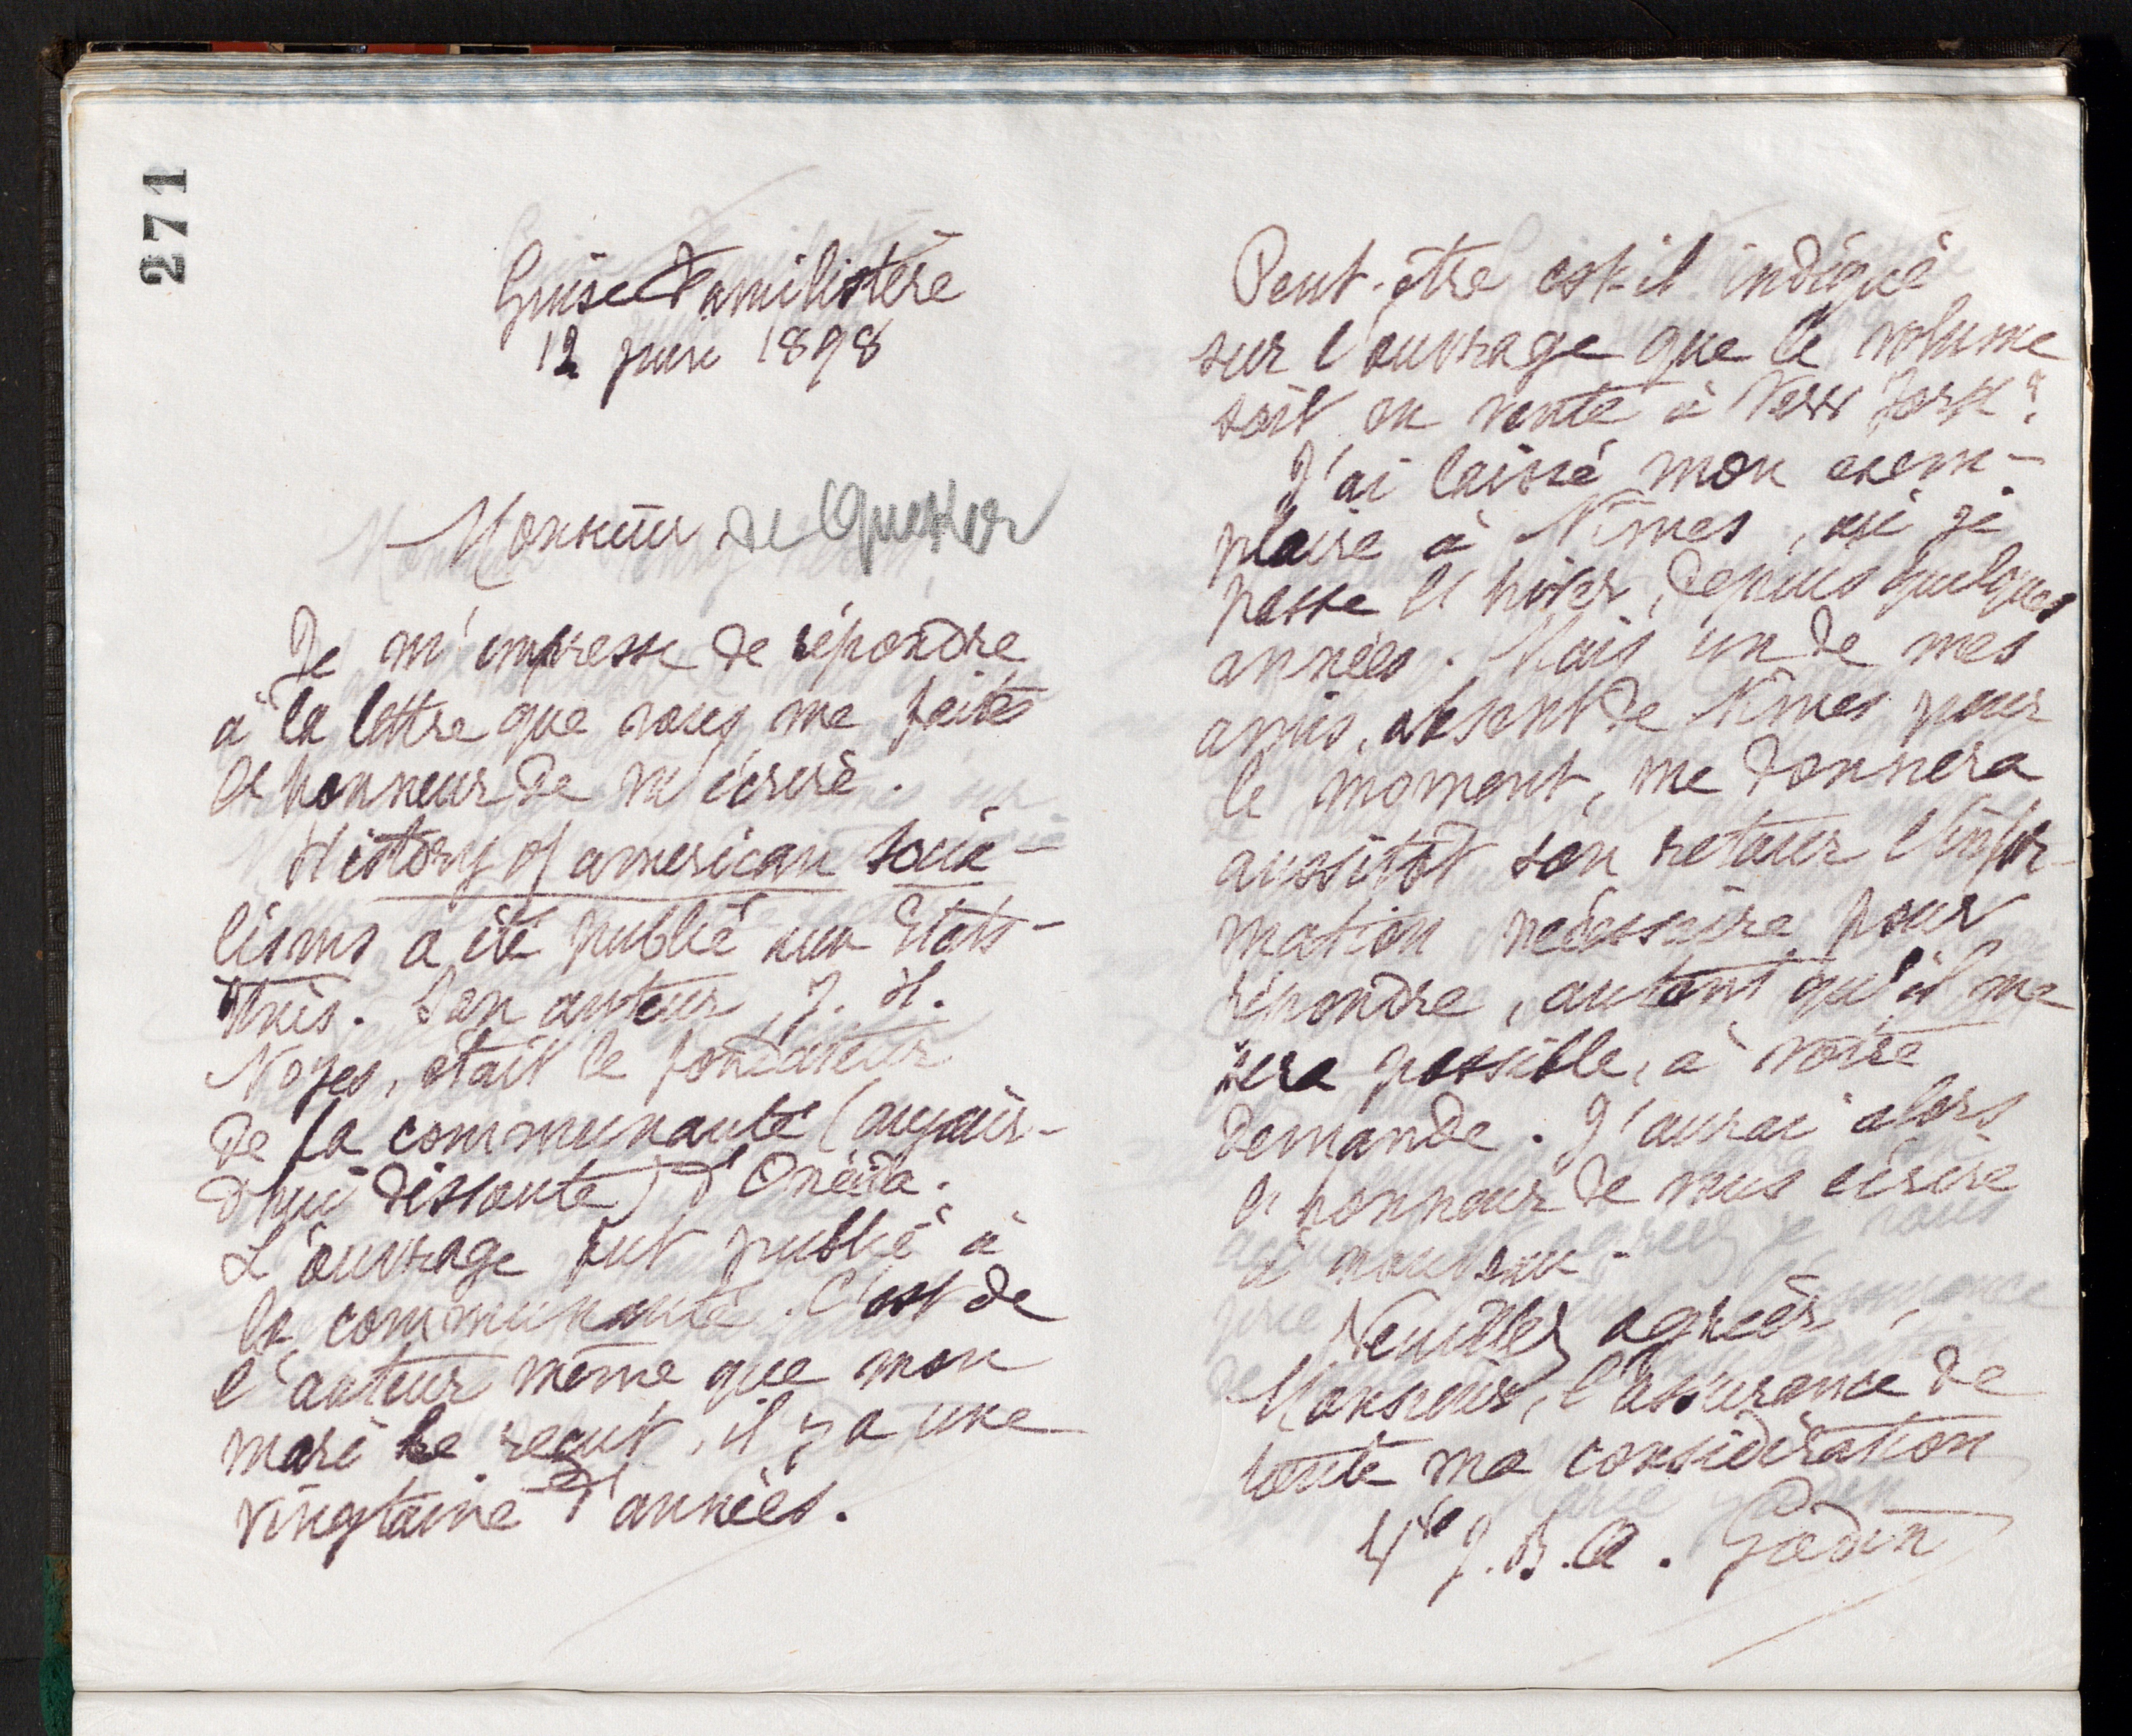 271
Guise Familistère
12 juin 1898
Monsieur de Quéker
Je m'empresse de répondre
à la lettre que vous me faites
l'honneur de m'écrire.
History of american socia-
lisms a été publié aux Etats-
Unis. Son auteur, J. H.
Noyes, était le fondateur
de la communauté (aujour-
d'hui dissoute) d'Onéida.
L'ouvrage fut publié à
la communauté. C'est de
l'auteur même que mon
mari le reçut, il y a une
vingtaine d'années.
Peut-être est-il indiqué
sur l'ouvrage que le volume
soit en vente à New York?
J'ai laissé mon exem-
plaire à Nîmes, où je
passe l'hiver, depuis quelques
années. Mais un de mes
amis, absent de Nîmes pour
le moment, me donnera
aussitôt son retour l'infor-
mation nécessaire pour
répondre, autant qu'il me
sera possible, à votre
demande. J'aurai alors
l'honneur de vous écrire
à nouveau.
Veuillez agréer,
Monsieur, l'assurance de
toute ma considération
Vve J. B. A. Godin